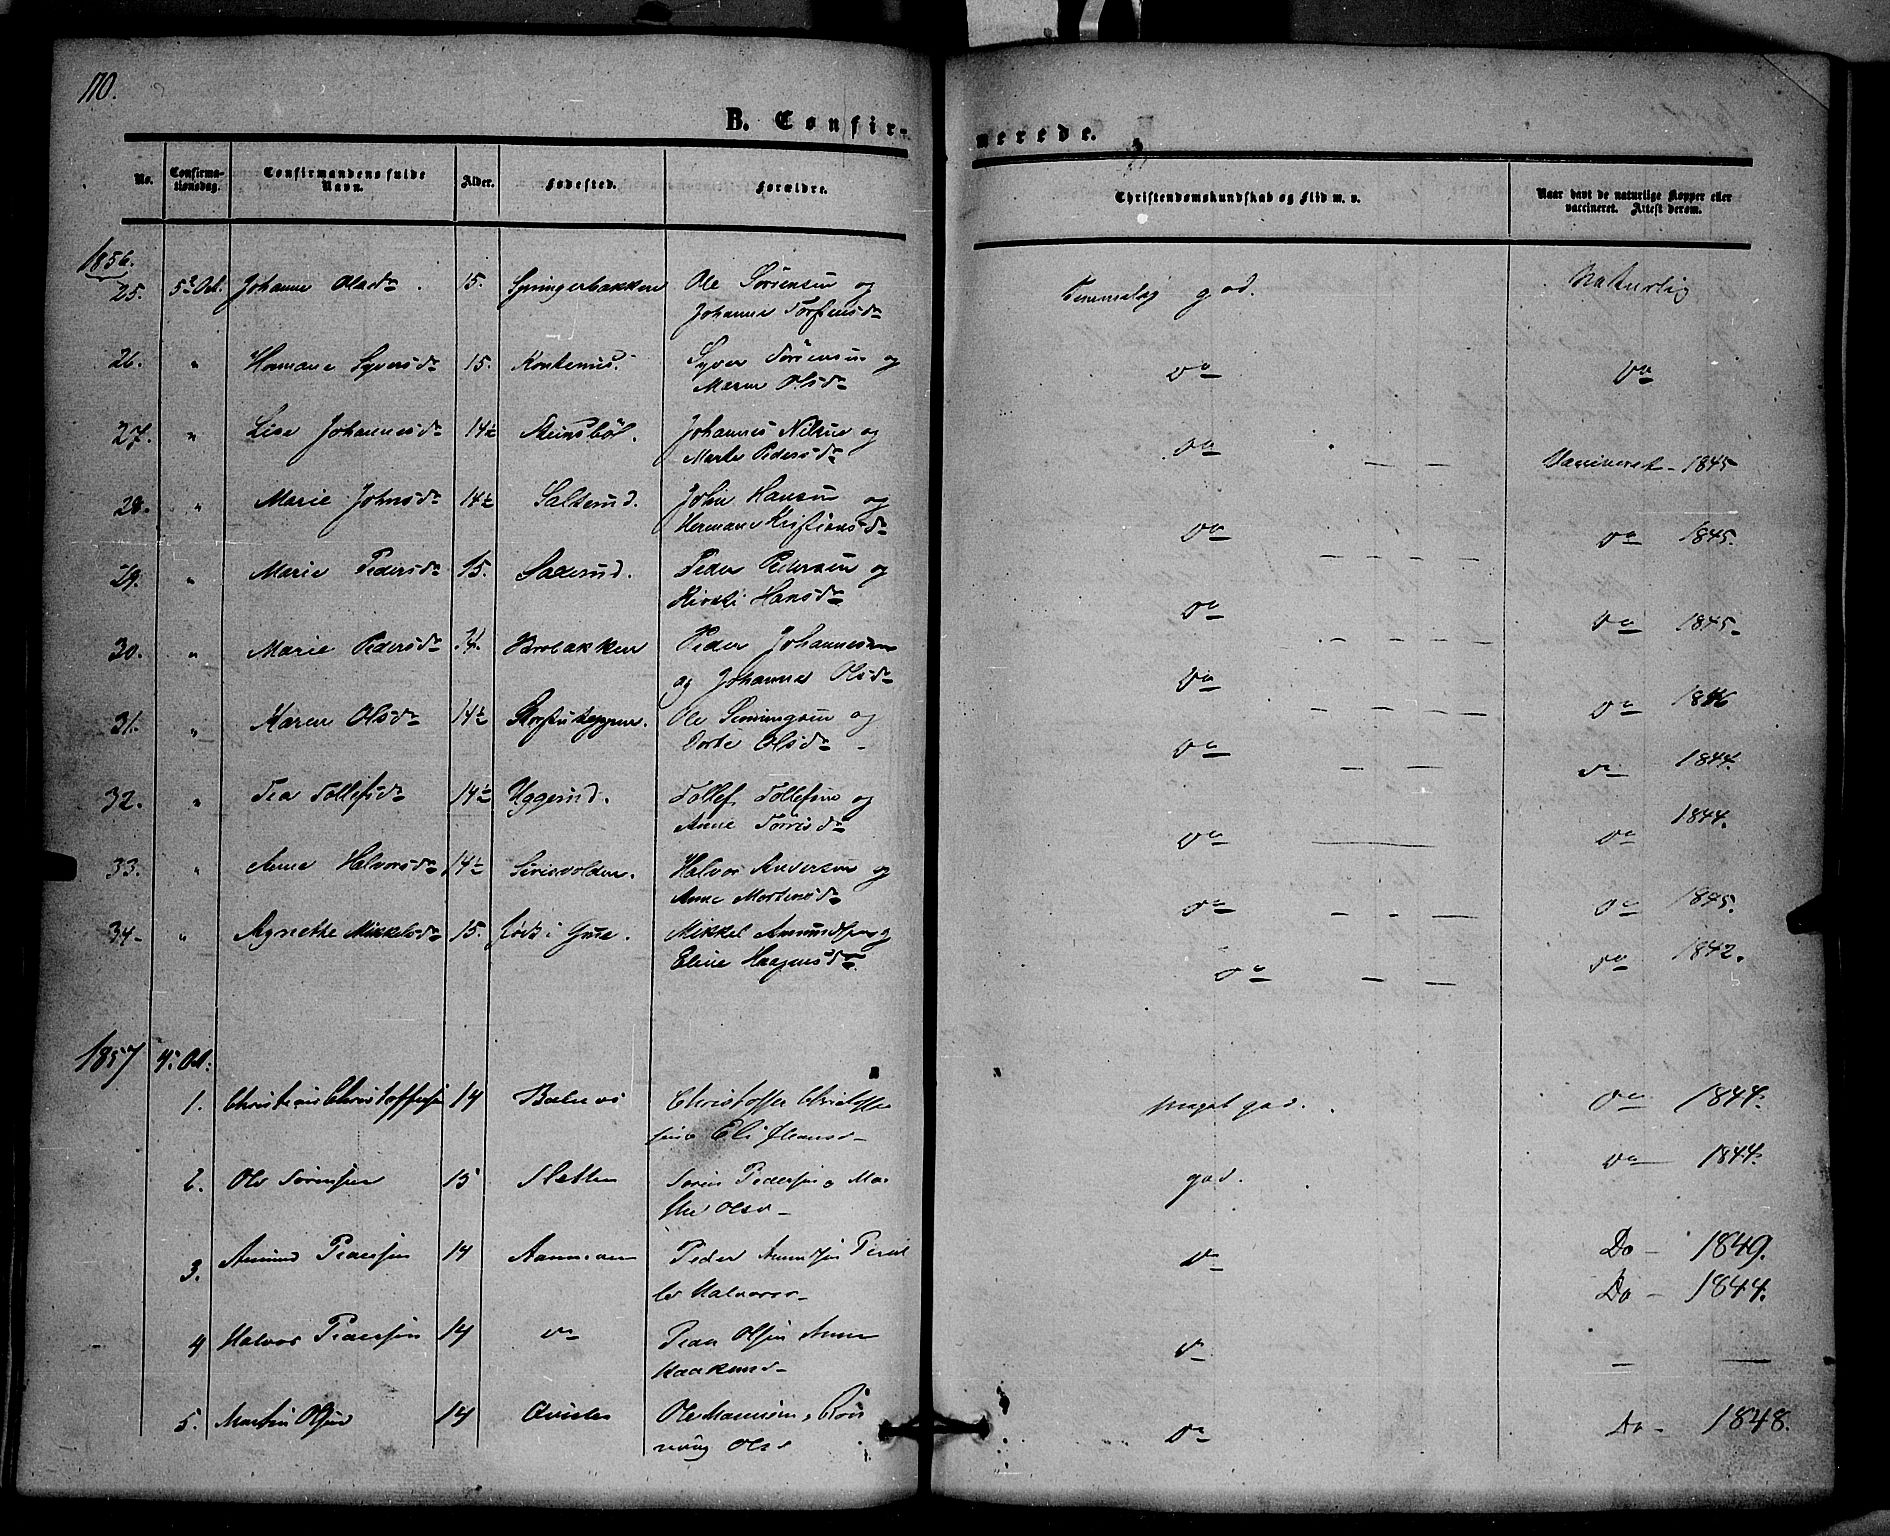 170.
B. Confir-
merede.
No.
Confirma-
tionsdag.
Confirmandens fulde
Navn.
Alder.
Fødested.
Forældre.
Christendomskundskab og Flid m. v.
Naar havt de naturlige Kopper eller
vaccineret. Attest derom.
1856.
25. 5te Oct. Johanne Olsdr 15. Springerbakken Ole Sörensen og
Johanne Torstensdr
Temmelig god. Naturlig
26. " Syversdr 15. Syver Sörensen og
Maren Olsdr
do do
27. " Lise Johannesdr 14½ Steinsböl. Johannes Nilsen og
Marte Pedersdr
do — — Vaccineret - 1845
28. " Marie Johnsdr 14½ John Hansen og
Hermane Kristiansdr
do — — — — do 1845.
29. " Marie Pedersdr 15. Peder Pedersen og
Kirsti Hansdr
do — — — — do 1845.
30. " Marie Pedersdr 14. Brobakken Peder Johannesen
og Johanne Olsdr
do — — — — do 1846
31. " Karen Olsdr 14½ Ole Simingsen og
Dorte Olsdr
do — — do 1844.
32. " Tea Tollefsdr 14½ Uggerud. Tollef Tollefsen og
Anne Torrisdr
do — do 1844.
33. " Anne Halvorsdr 14½ Sirisvolden. Halvor Andersen og
Anne Mortensdr
do — - — do 1845.
34. " Agnethe Mikkelsdr 15. født i Grue. Mikkel Amundsen og
Eline Haagensdr
do — — do 1842.
1857 4. Oct.
1. Christian Christoffersen 14 Christoffer Christoffer
sen Eli Hansd
meget god. do 1844.
2. Ole Sörensen 15 Sletten Sören Pedersen o Mar
the Olsd
god. do 1844.
3. Amund Pedersen 14 Peder Amundsen Pernil
le Halvorsd
do Do - 1849.
Do - 1844.
4 Halvor Pedersen 14 do Peder Olsen Anne
Haakensd
do — —
5. Martin Olsen 14 Ole Hansen, Rön
naug Olsd
do Do - 1848.